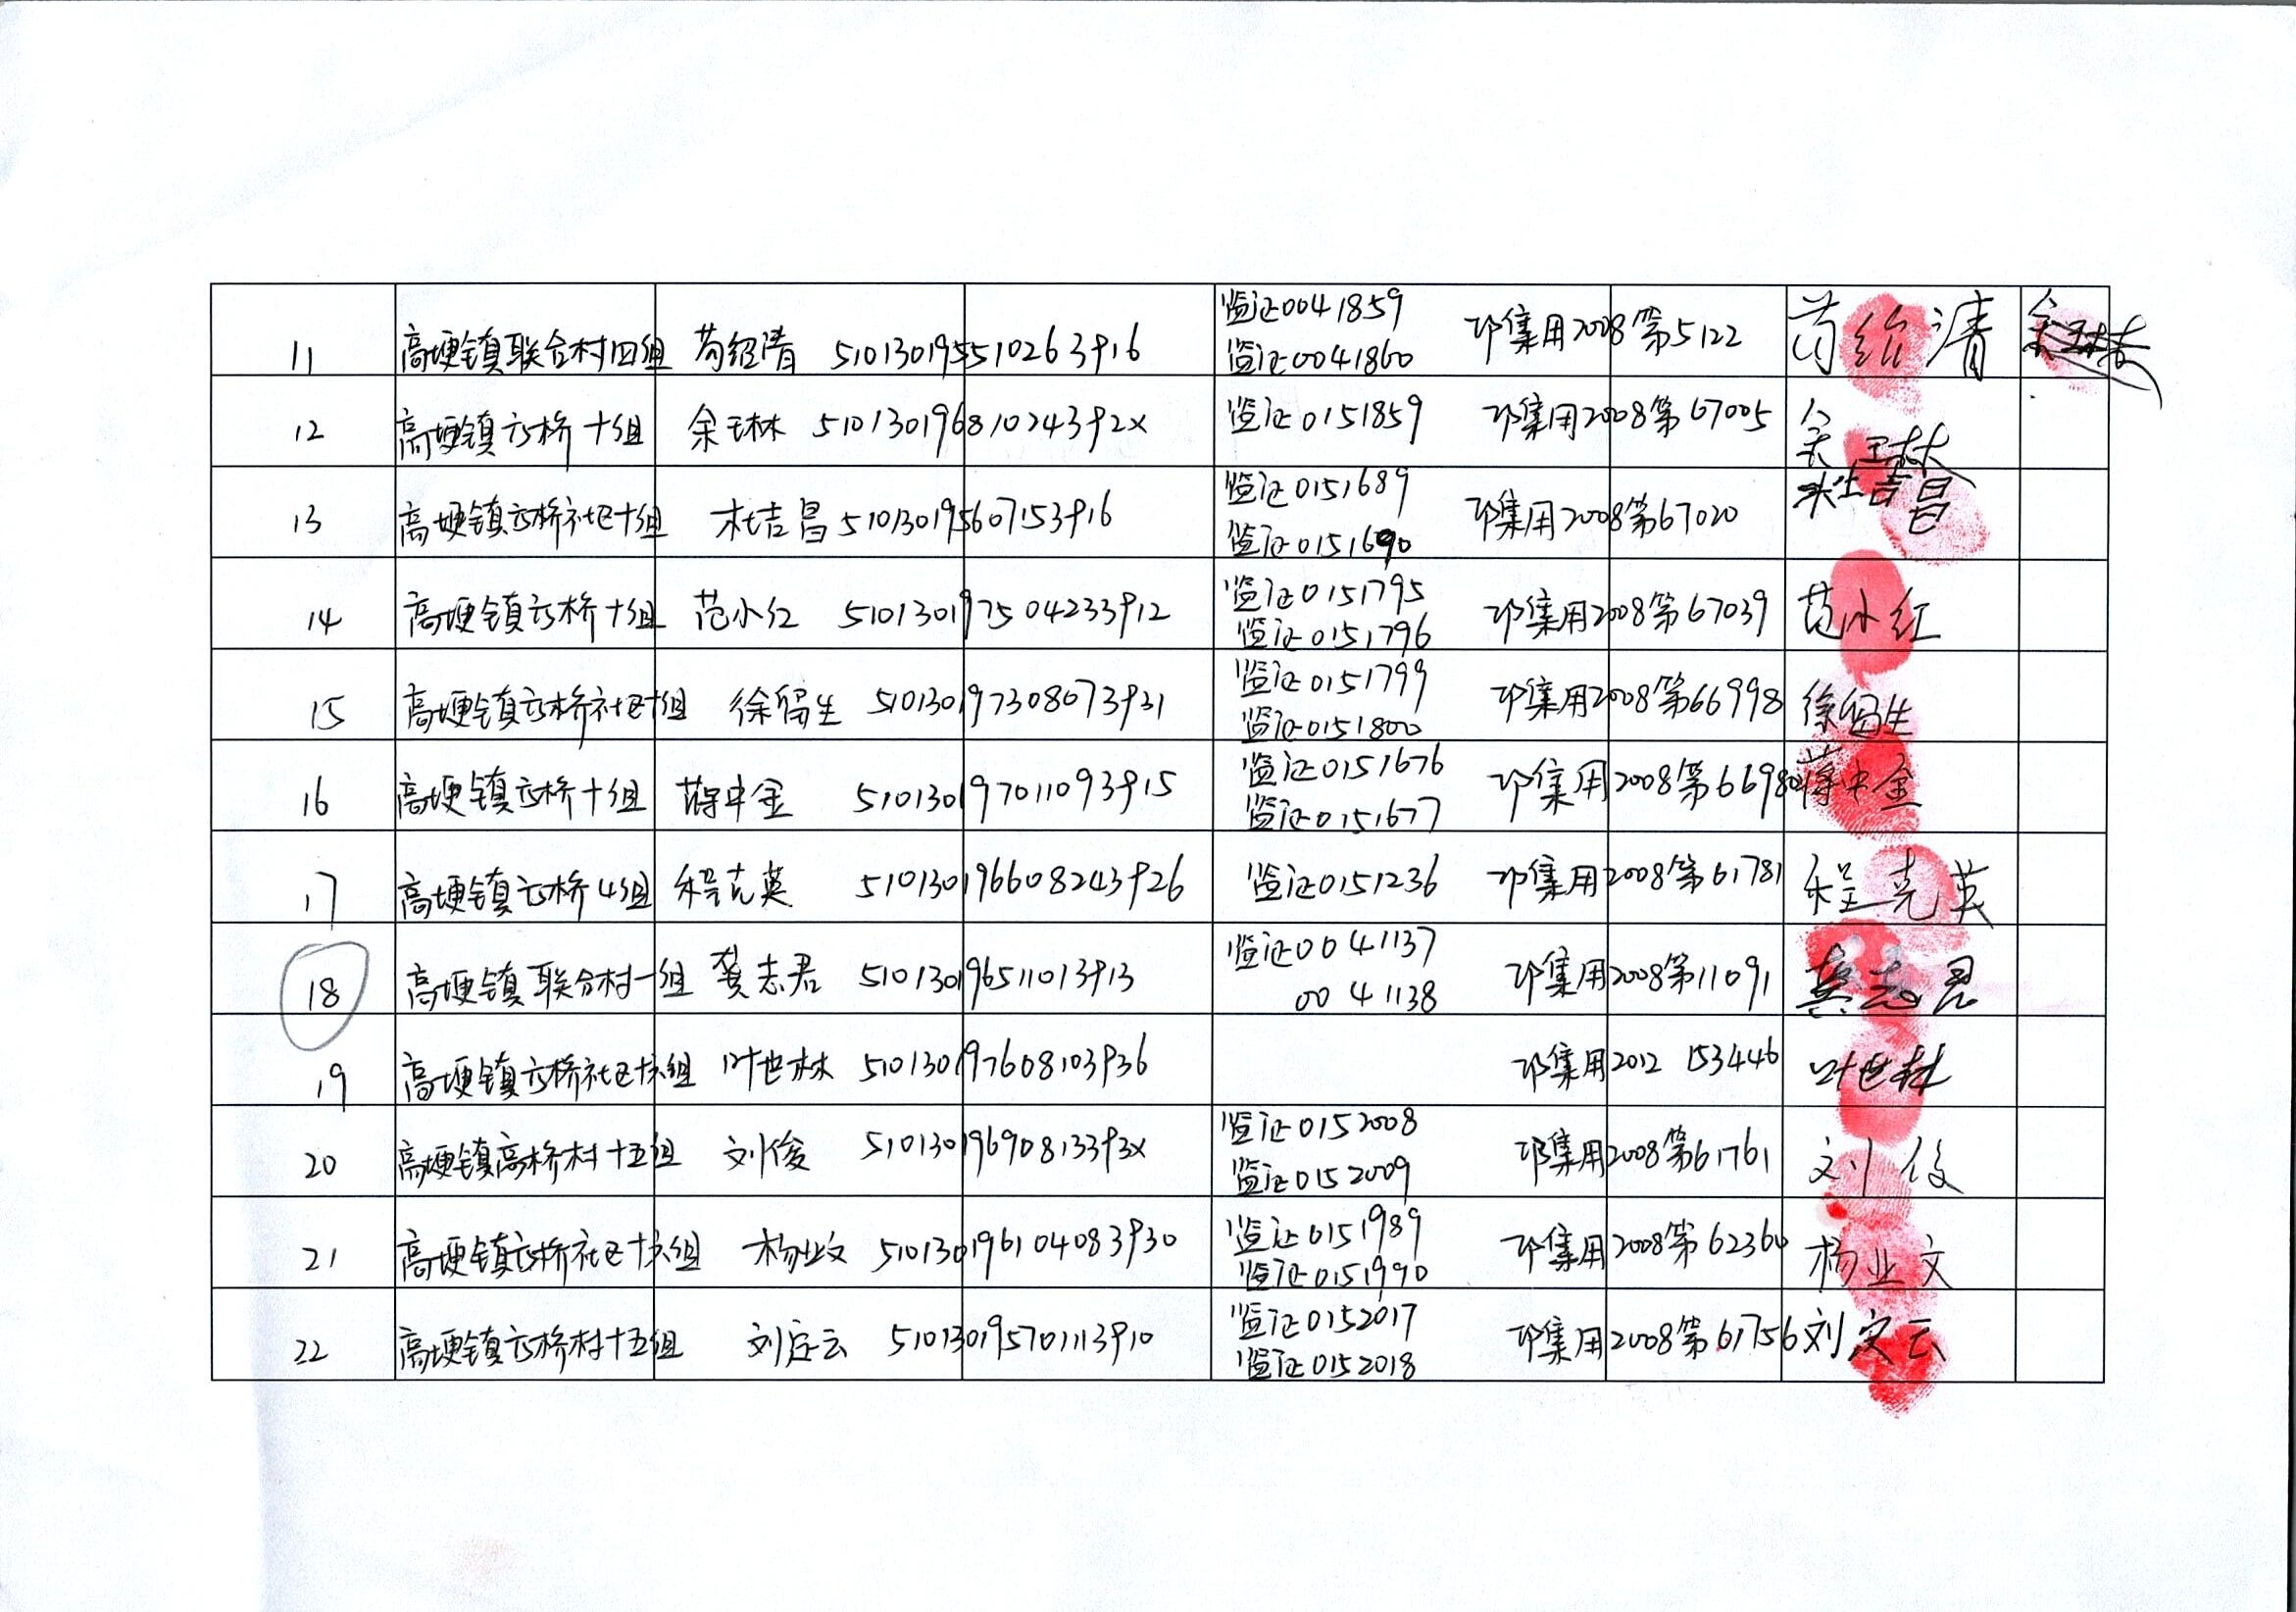 11 高埂镇联合村四组 苟绍清 510130195510263916 监证0041859 邛集用2008第5122 苟绍清
监证0041860
12 高埂镇方桥十组 余玉林 51013019681024392x 监证0151859 邛集用2008第67005 余玉林
13 高埂镇方桥社区十组 杜吉昌 510130195607153916 监证0151689 邛集用2008第67020 杜吉昌
监证0151690
14 高埂镇方桥十组 范小红 510130197504233912 监证0151795 邛集用2008第67039 范小红
监证0151796
15 高埂镇方桥社区十组 徐留生 510130197308073931 监证0151799 邛集用2008第66998 徐留生
监证0151800
16 高埂镇方桥十组 蒋中金 510130197011093915 监证0151676 邛集用2008第66980 蒋中金
监证0151677
17 高埂镇方桥4组 程克英 510130196608243926 监证0151236 邛集用2008第61781 程克英
18 高埂镇联合村一组 龚志君 510130196511013913 监证0041137 邛集用2008第11091 龚志君
0041138
19 高埂镇方桥社区十六组 叶世林 510130197608103936 邛集用2012 153446 叶世林
20 高埂镇高桥村十五组 刘俊 51013019690813393x 监证0152008 邛集用2008第61761 刘俊
监证0152009
21 高埂镇方桥社区十六组 杨业文 510130196104083930 监证0151989 邛集用2008第62360 杨业文
监证0151990
22 高埂镇方桥村十五组 刘定云 510130195701113910 监证0152017 邛集用2008第61756 刘定云
监证0152018